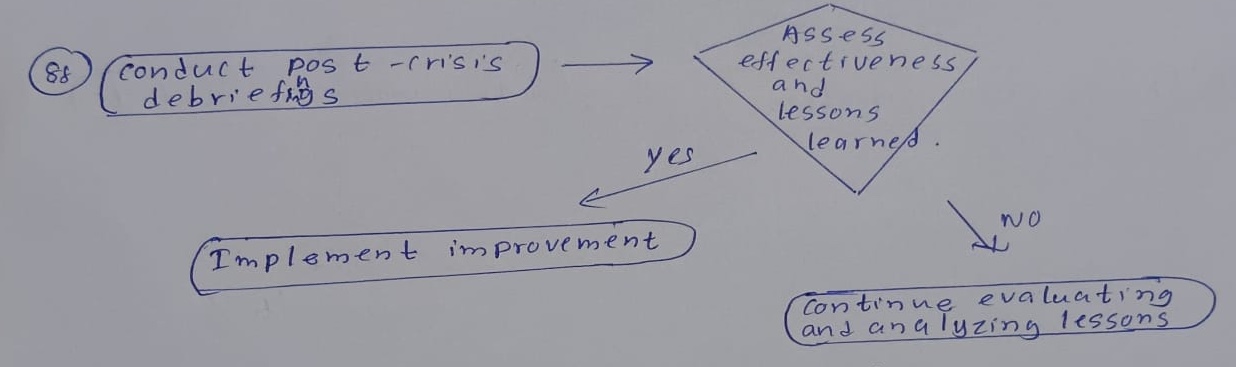 88
conduct post-crisis
debriefings
Assess
effectiveness
and
lessons
learned.
yes
NO
Implement improvement
continue evaluating
and analyzing lessons